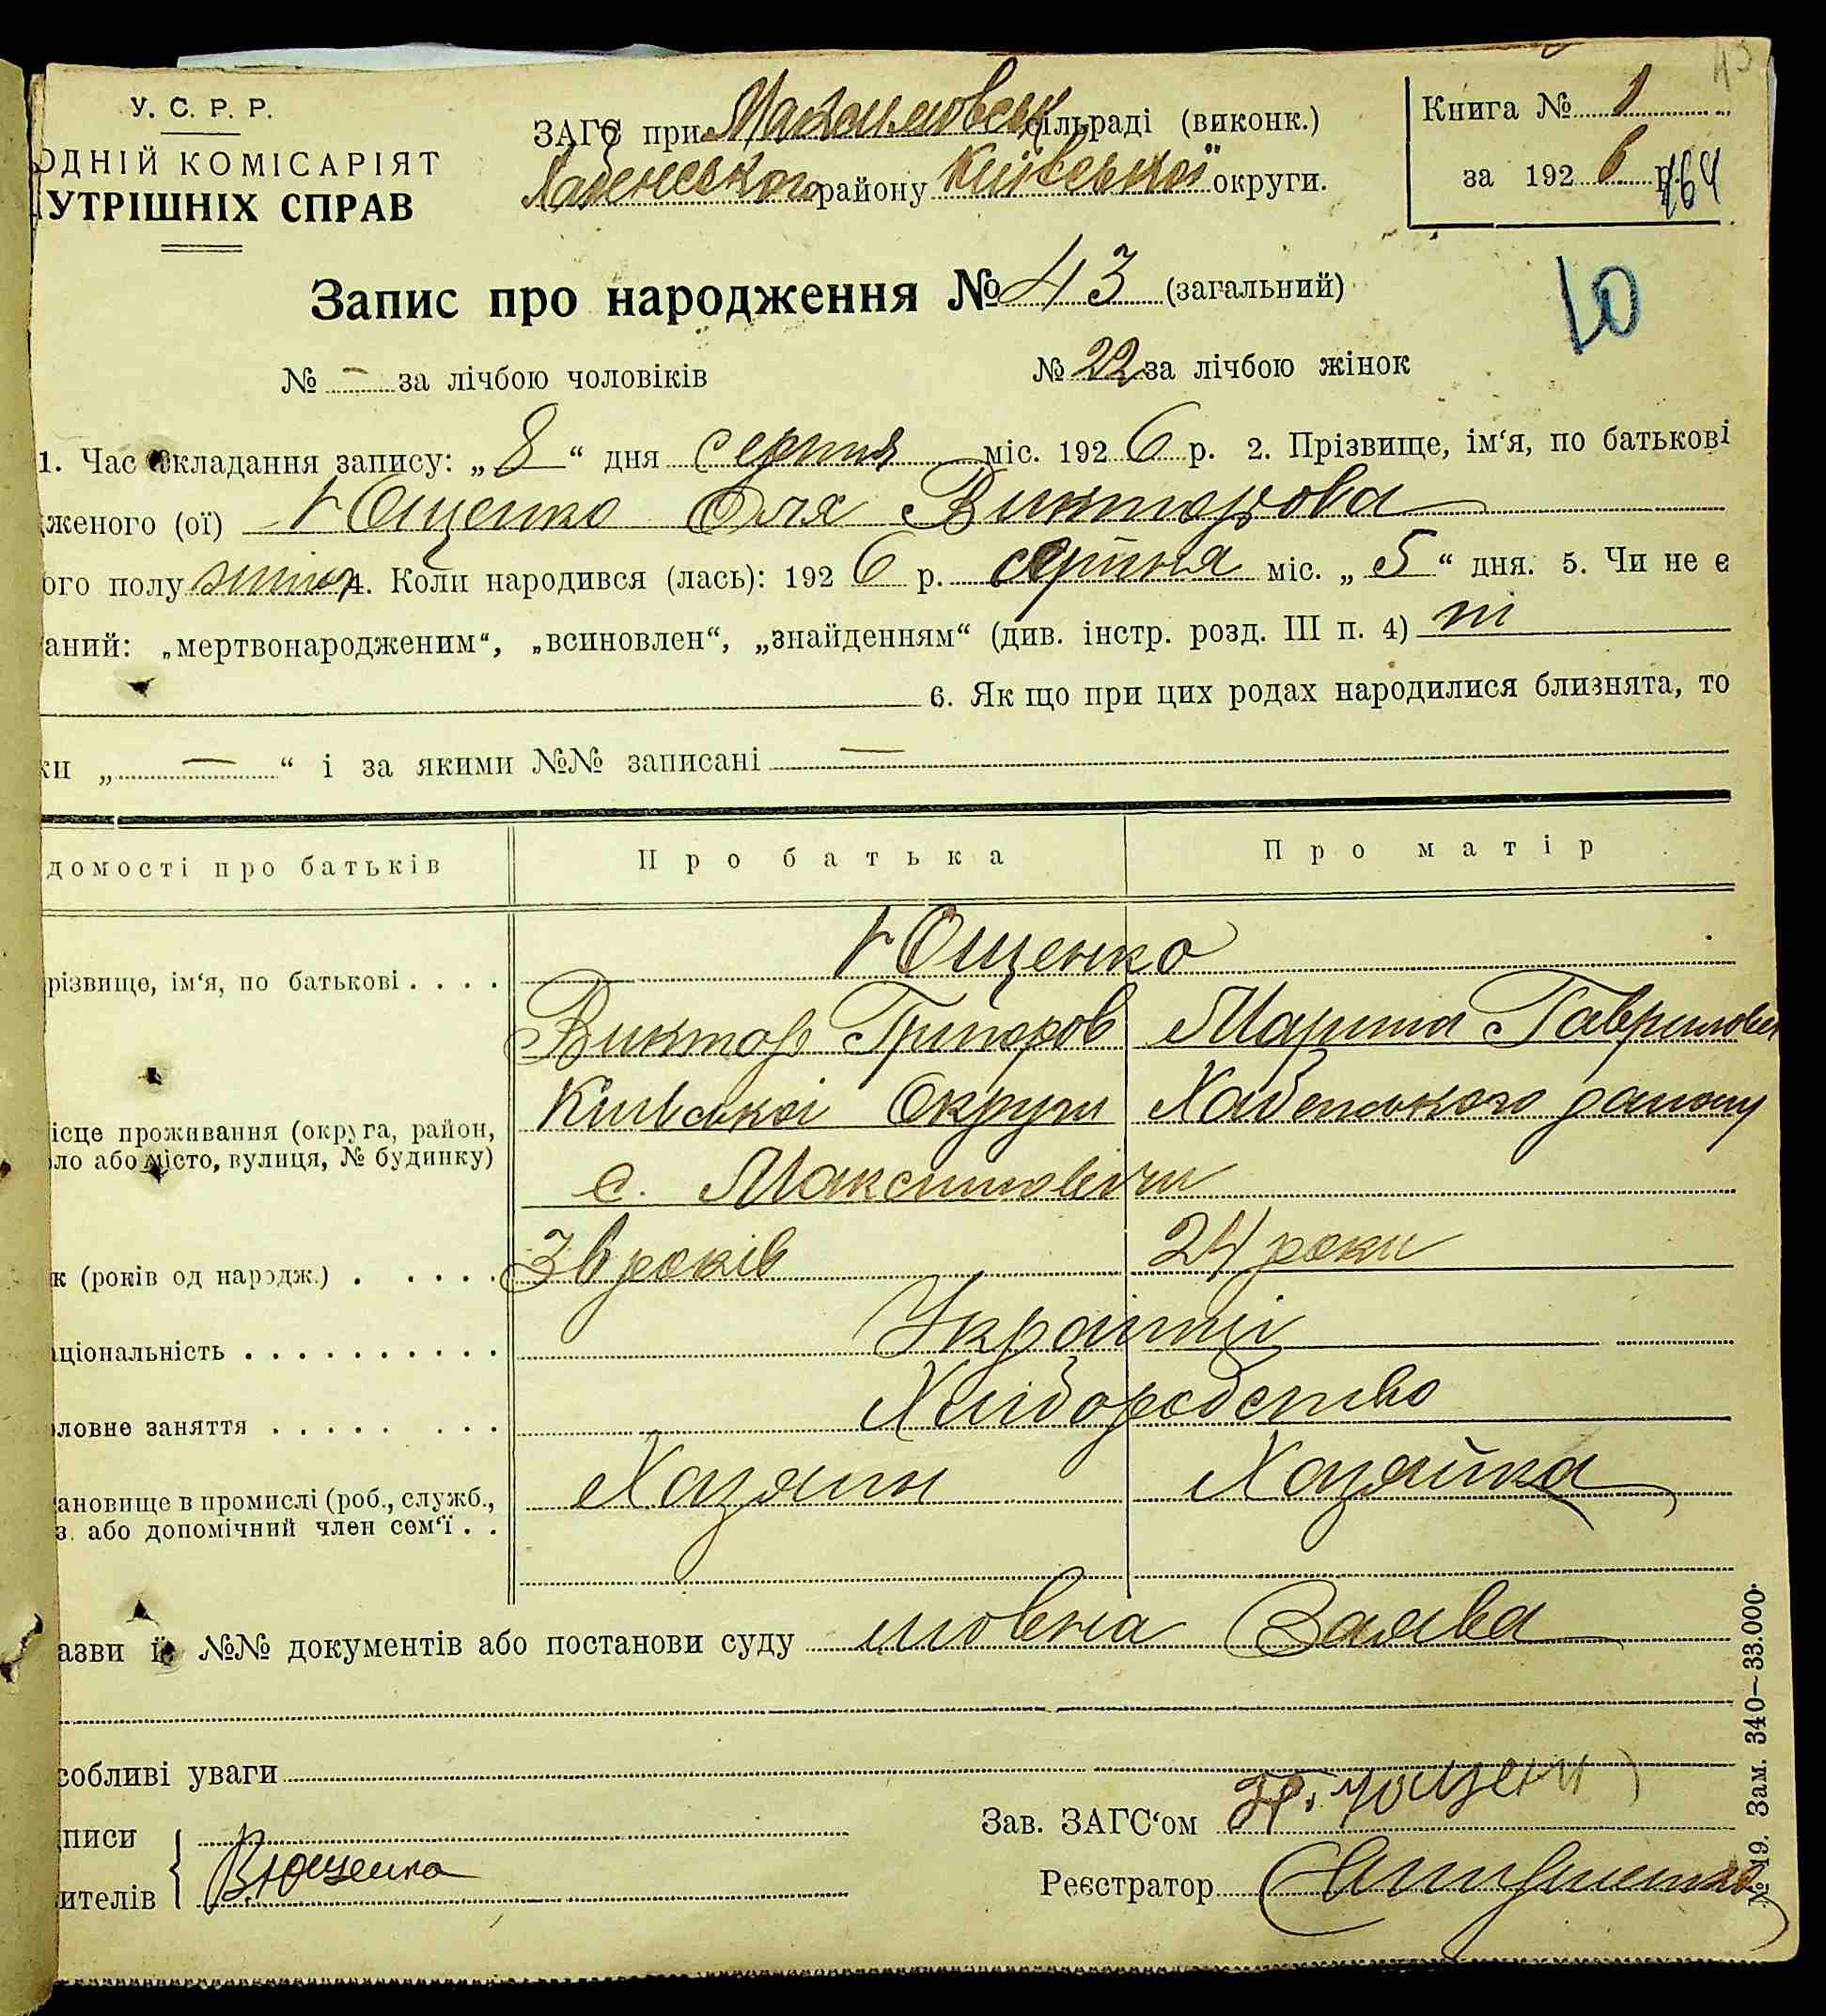 У. С. Р. Р.
ОДНІЙ КОМІСАРІЯТ
УТРІШНІХ СПРАВ
ЗАГС при сільраді (виконк.)
Хабенського району Київської округи.
Книга № 1
за 1926 р.
164
Запис про народження № 43 (загальний)
10
№ - за лічбою чоловіків № 22 за лічбою жінок
1. Час складання запису: „8“ дня серпня міс. 1926 р. 2. Прізвище, ім‘я, по батькові
дженого (ої) Ющенко Оля Викторова
ого полу жіноч 4. Коли народився (лась): 1926 р. серпня міс. „5“ дня. 5. Чи не є
аний: „мертвонародженим“, „всиновлен“, „знайденням“ (див. інстр. розд. III п. 4) ні
6. Як що при цих родах народилися близнята, то
ки „—“ і за якими №№ записані —
домості про батьків Про батька Про матір
Ющенко
різвище, ім‘я, по батькові . . . .
Виктор Григоров Марина Гаврилов
Київської Округи Хабенського району
ісце проживання (округа, район,
ло або місто, вулиця, № будинку)
с. Максимовичи
к (років од нагодж.) . . . . . 36 років 24 роки
Українці
ціональність . . . . . . . . . .
Хліборобство
ловне заняття . . . . . . . .
Хазяин Хазяйка
ановище в промислі (роб., служб.,
з. або допомічний член сем‘ї . .
азви й №№ документів або постанови суду мовна Заява
собливі уваги
Зав. ЗАГС‘ом
писи
ителів В. Ющенко
Реєстратор
№ 19. Зам. 340—33.000.